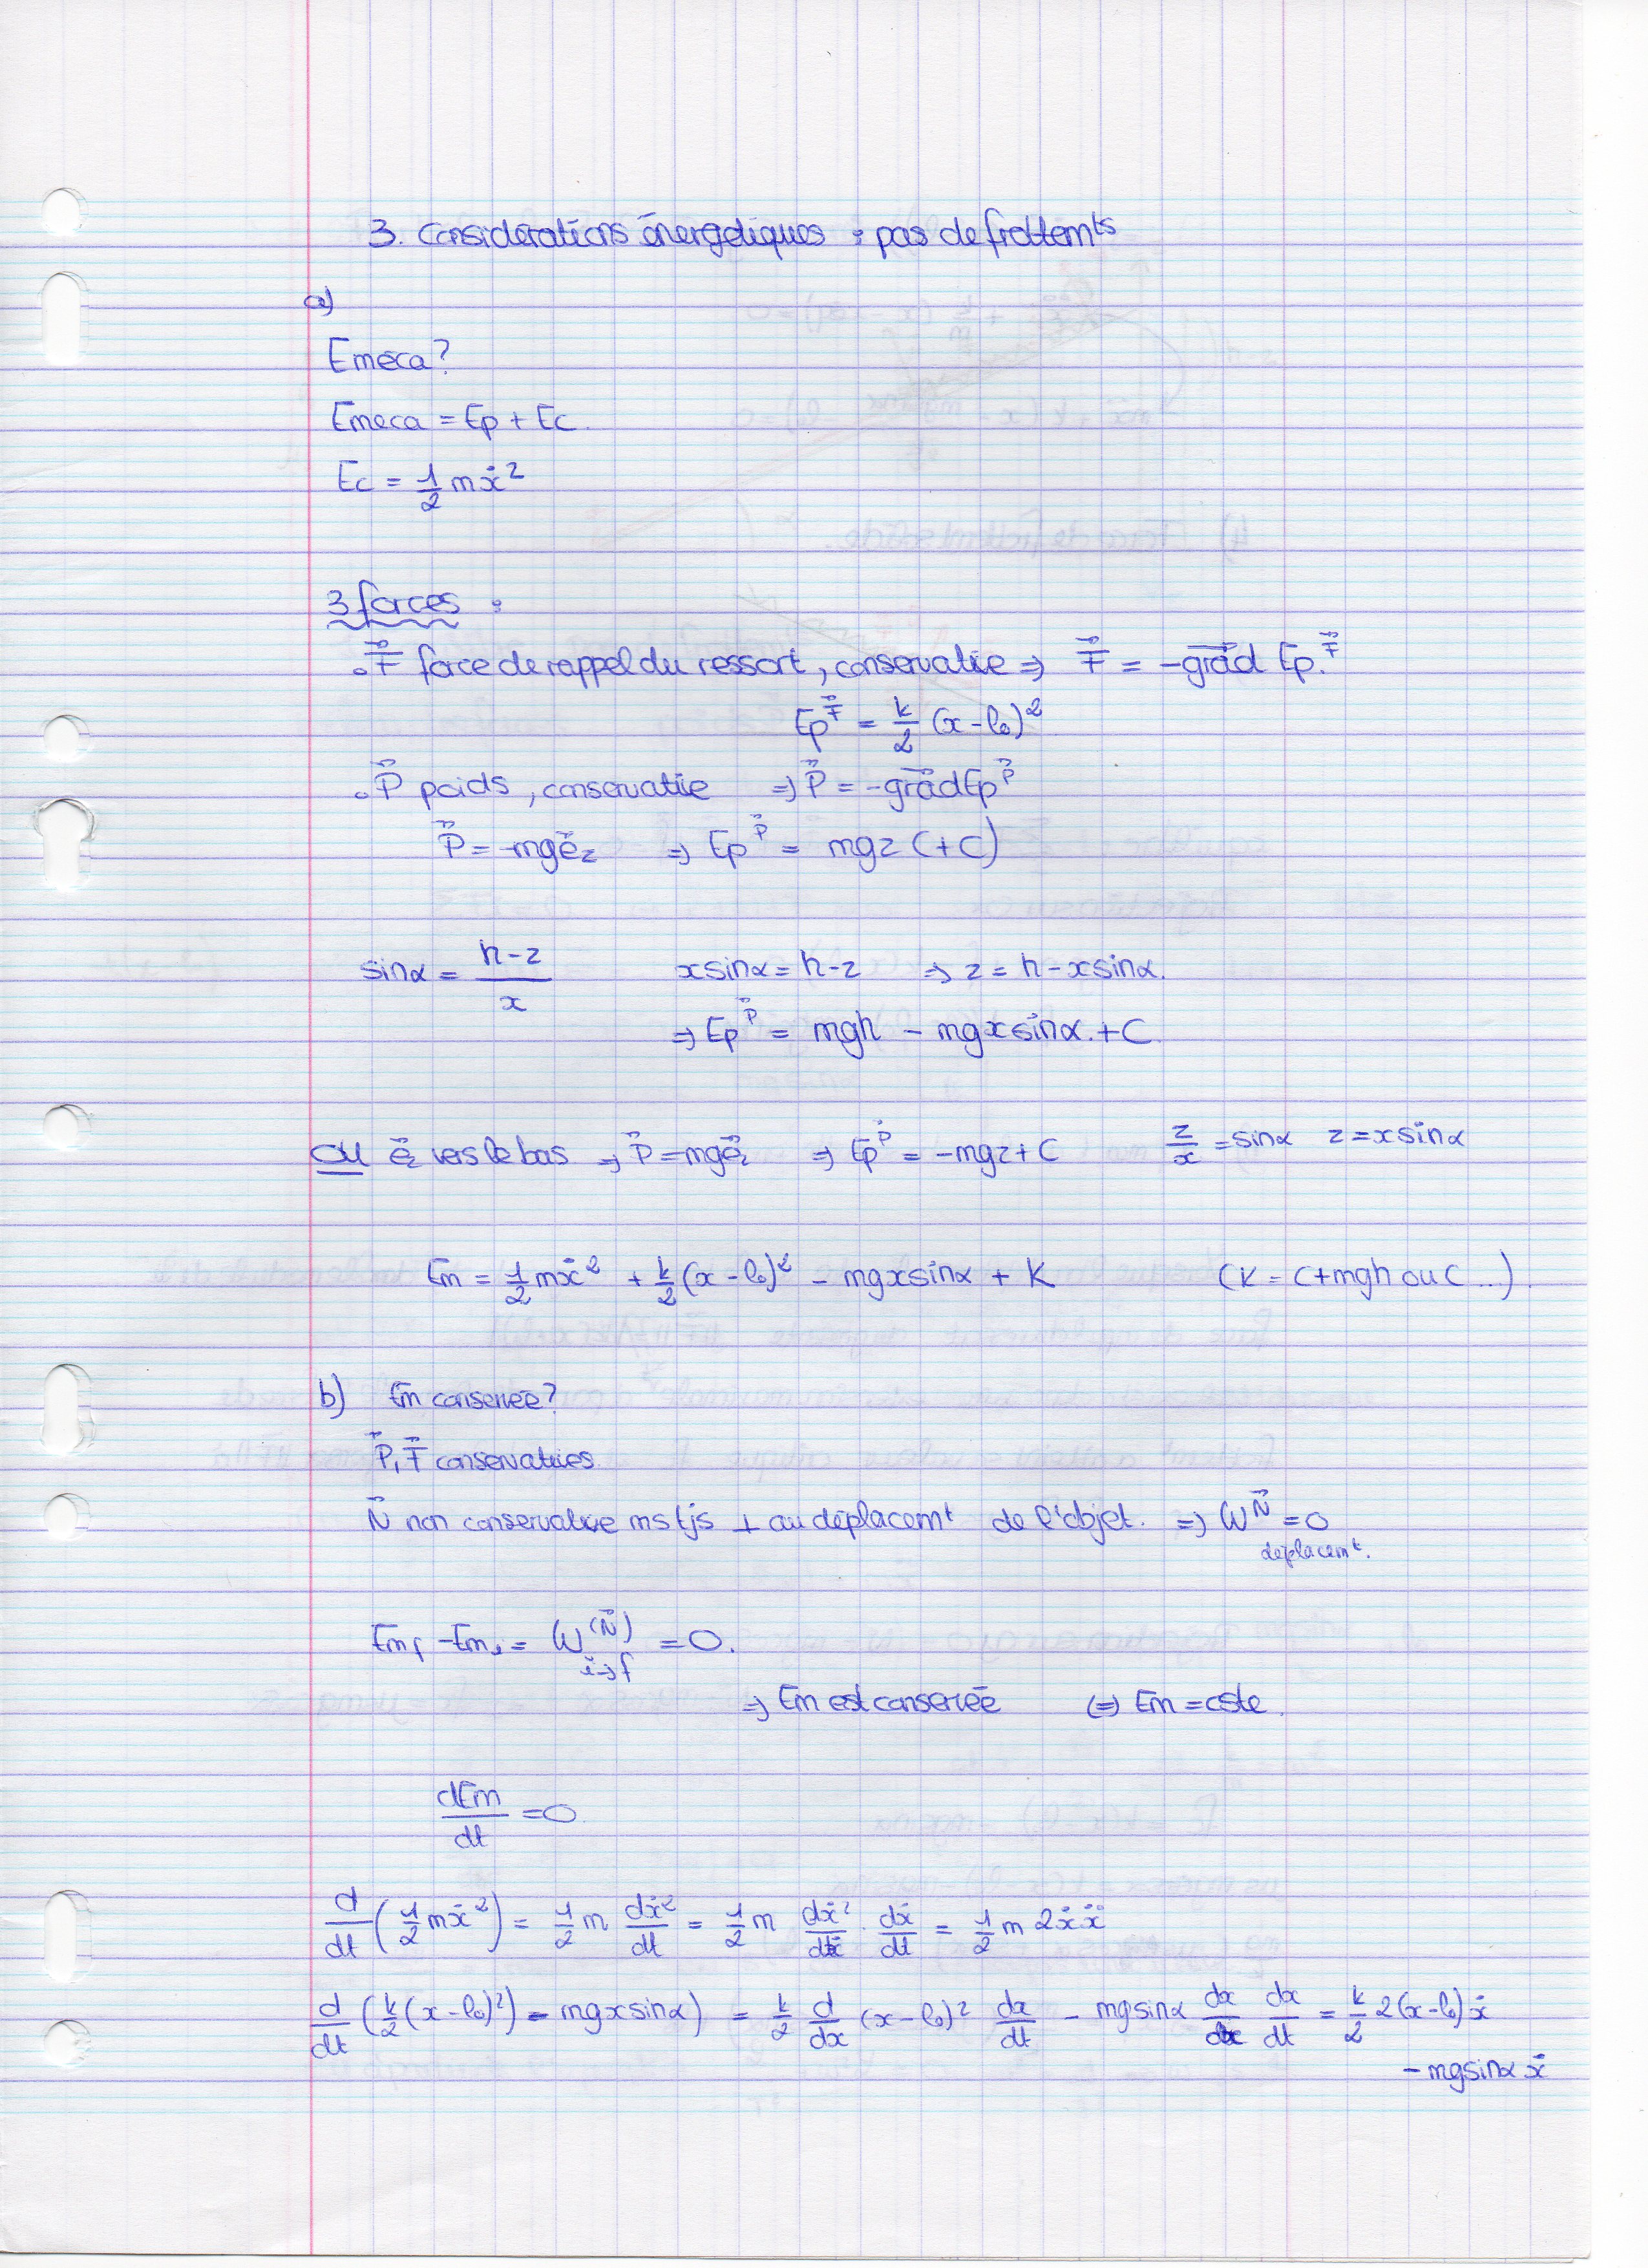 3. Considérations énergétiques : pas de frottemts
a)
Emeca?
Emeca = Ep + Ec.
Ec = 1/2 mẋ²
3 forces :
. F⃗ force de rappel du ressort, conservative ⇒ F⃗ = -grad⃗ Ep.^F⃗
Ep^F⃗ = k/2 (x - l₀)²
. P⃗ poids, conservative ⇒ P⃗ = -grad⃗ Ep^P⃗
P⃗ = -mge⃗z ⇒ Ep^P⃗ = mgz (+C)
sinα = (h-z)/x xsinα = h-z ⇒ z = h - xsinα.
⇒ Ep^P⃗ = mgh - mgxsinα. + C
OU e⃗z vers le bas ⇒ P⃗ = mge⃗z ⇒ Ep^P⃗ = -mgz + C z/x = sinα z = xsinα
Em = 1/2 mẋ² + k/2 (x - l₀)² - mgxsinα + K (K = C+mgh ou C ...).
b) Em conservée?
P⃗, F⃗ conservatives
N⃗ non conservative ms tjs ⊥ au déplacemt de l'objet. ⇒ W^N⃗ = 0
déplacemt.
Emf - Emi = W^(N⃗) i→f = 0.
⇒ Em est conservée (⇒ Em = cste.
dEm/dt = 0
d/dt (1/2 mẋ²) = 1/2 m dẋ²/dt = 1/2 m dẋ²/dẋ . dẋ/dt = 1/2 m 2ẋẍ
d/dt (k/2 (x - l₀)²) - mgxsinα) = k/2 d/dx (x - l₀)² dx/dt - mgsinα dx/dx dx/dt = k/2 2(x - l₀)ẋ
- mgsinα ẋ